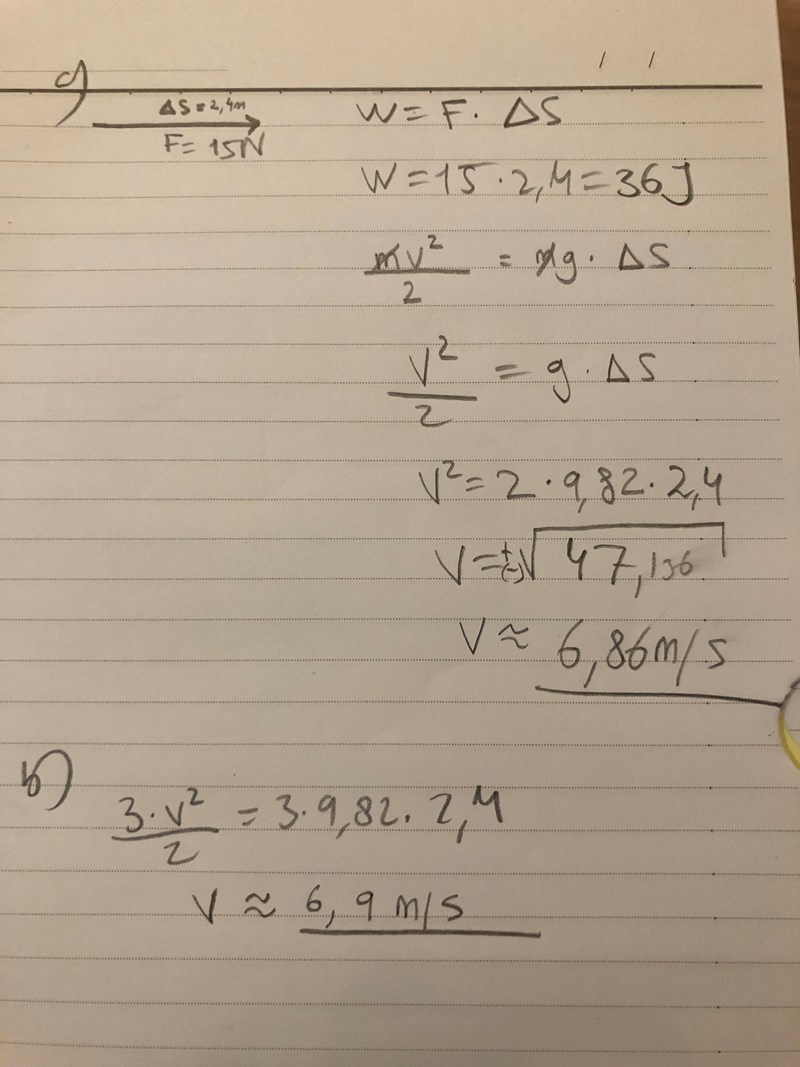 a)
ΔS = 2,4m
F = 15N
W = F · ΔS
W = 15 · 2,4 = 36J
mv²/2 = mg · ΔS
V²/2 = g · ΔS
V² = 2 · 9,82 · 2,4
V = ±√47,136
V ≈ 6,86m/s
b)
3·v²/2 = 3·9,82·2,4
V ≈ 6,9 m/s